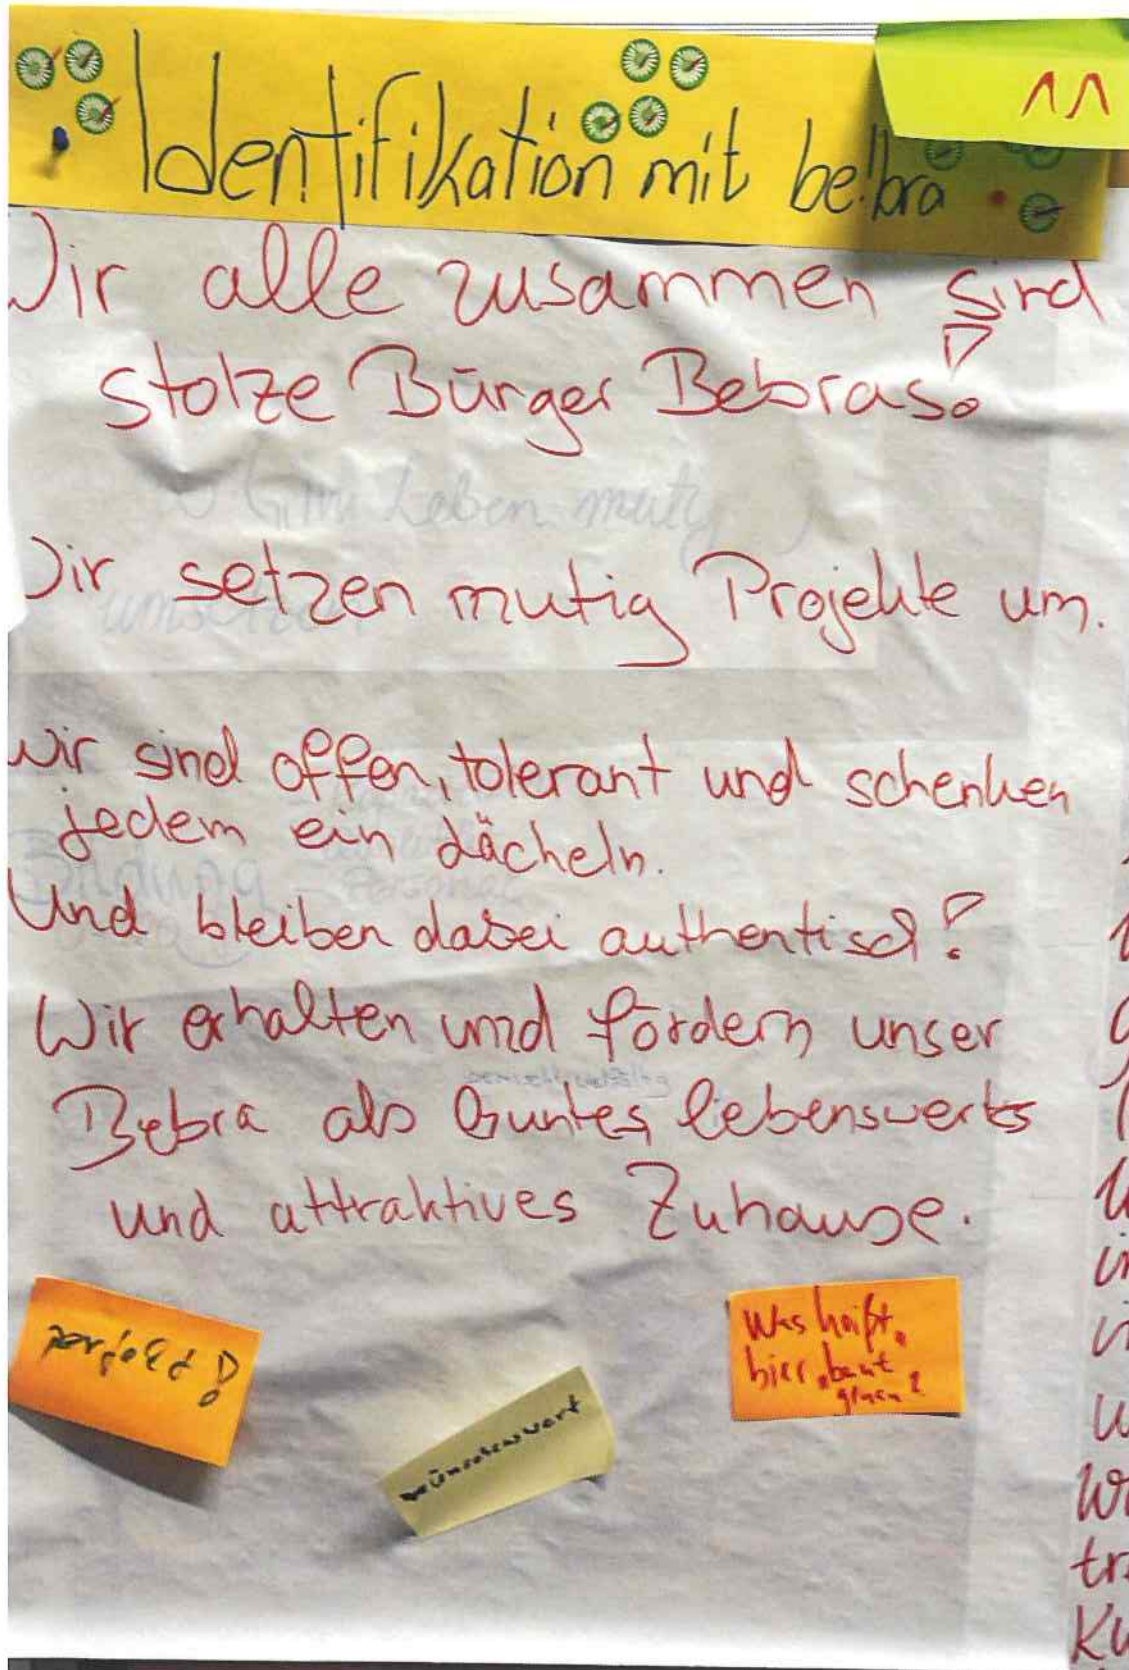 Identifikation mit be!bra
11
Wir alle zusammen sind
stolze Bürger Bebras!
Wir setzen mutig Projekte um.
Wir sind offen, tolerant und schenken
jedem ein Lächeln.
Und bleiben dabei authentisch!
Wir erhalten und fördern unser
Bebra als buntes, lebenswertes
und attraktives Zuhause.
perfekt!
wünschenswert
Was heißt
hier bunt